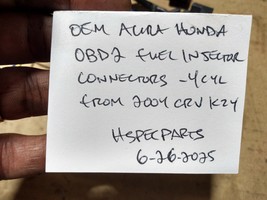 OEM ACURA HONDA
OBD2 FUEL INJECTOR
CONNECTORS - 4CYL
FROM 2004 CRV K24
HSPECPARTS
6-26-2025